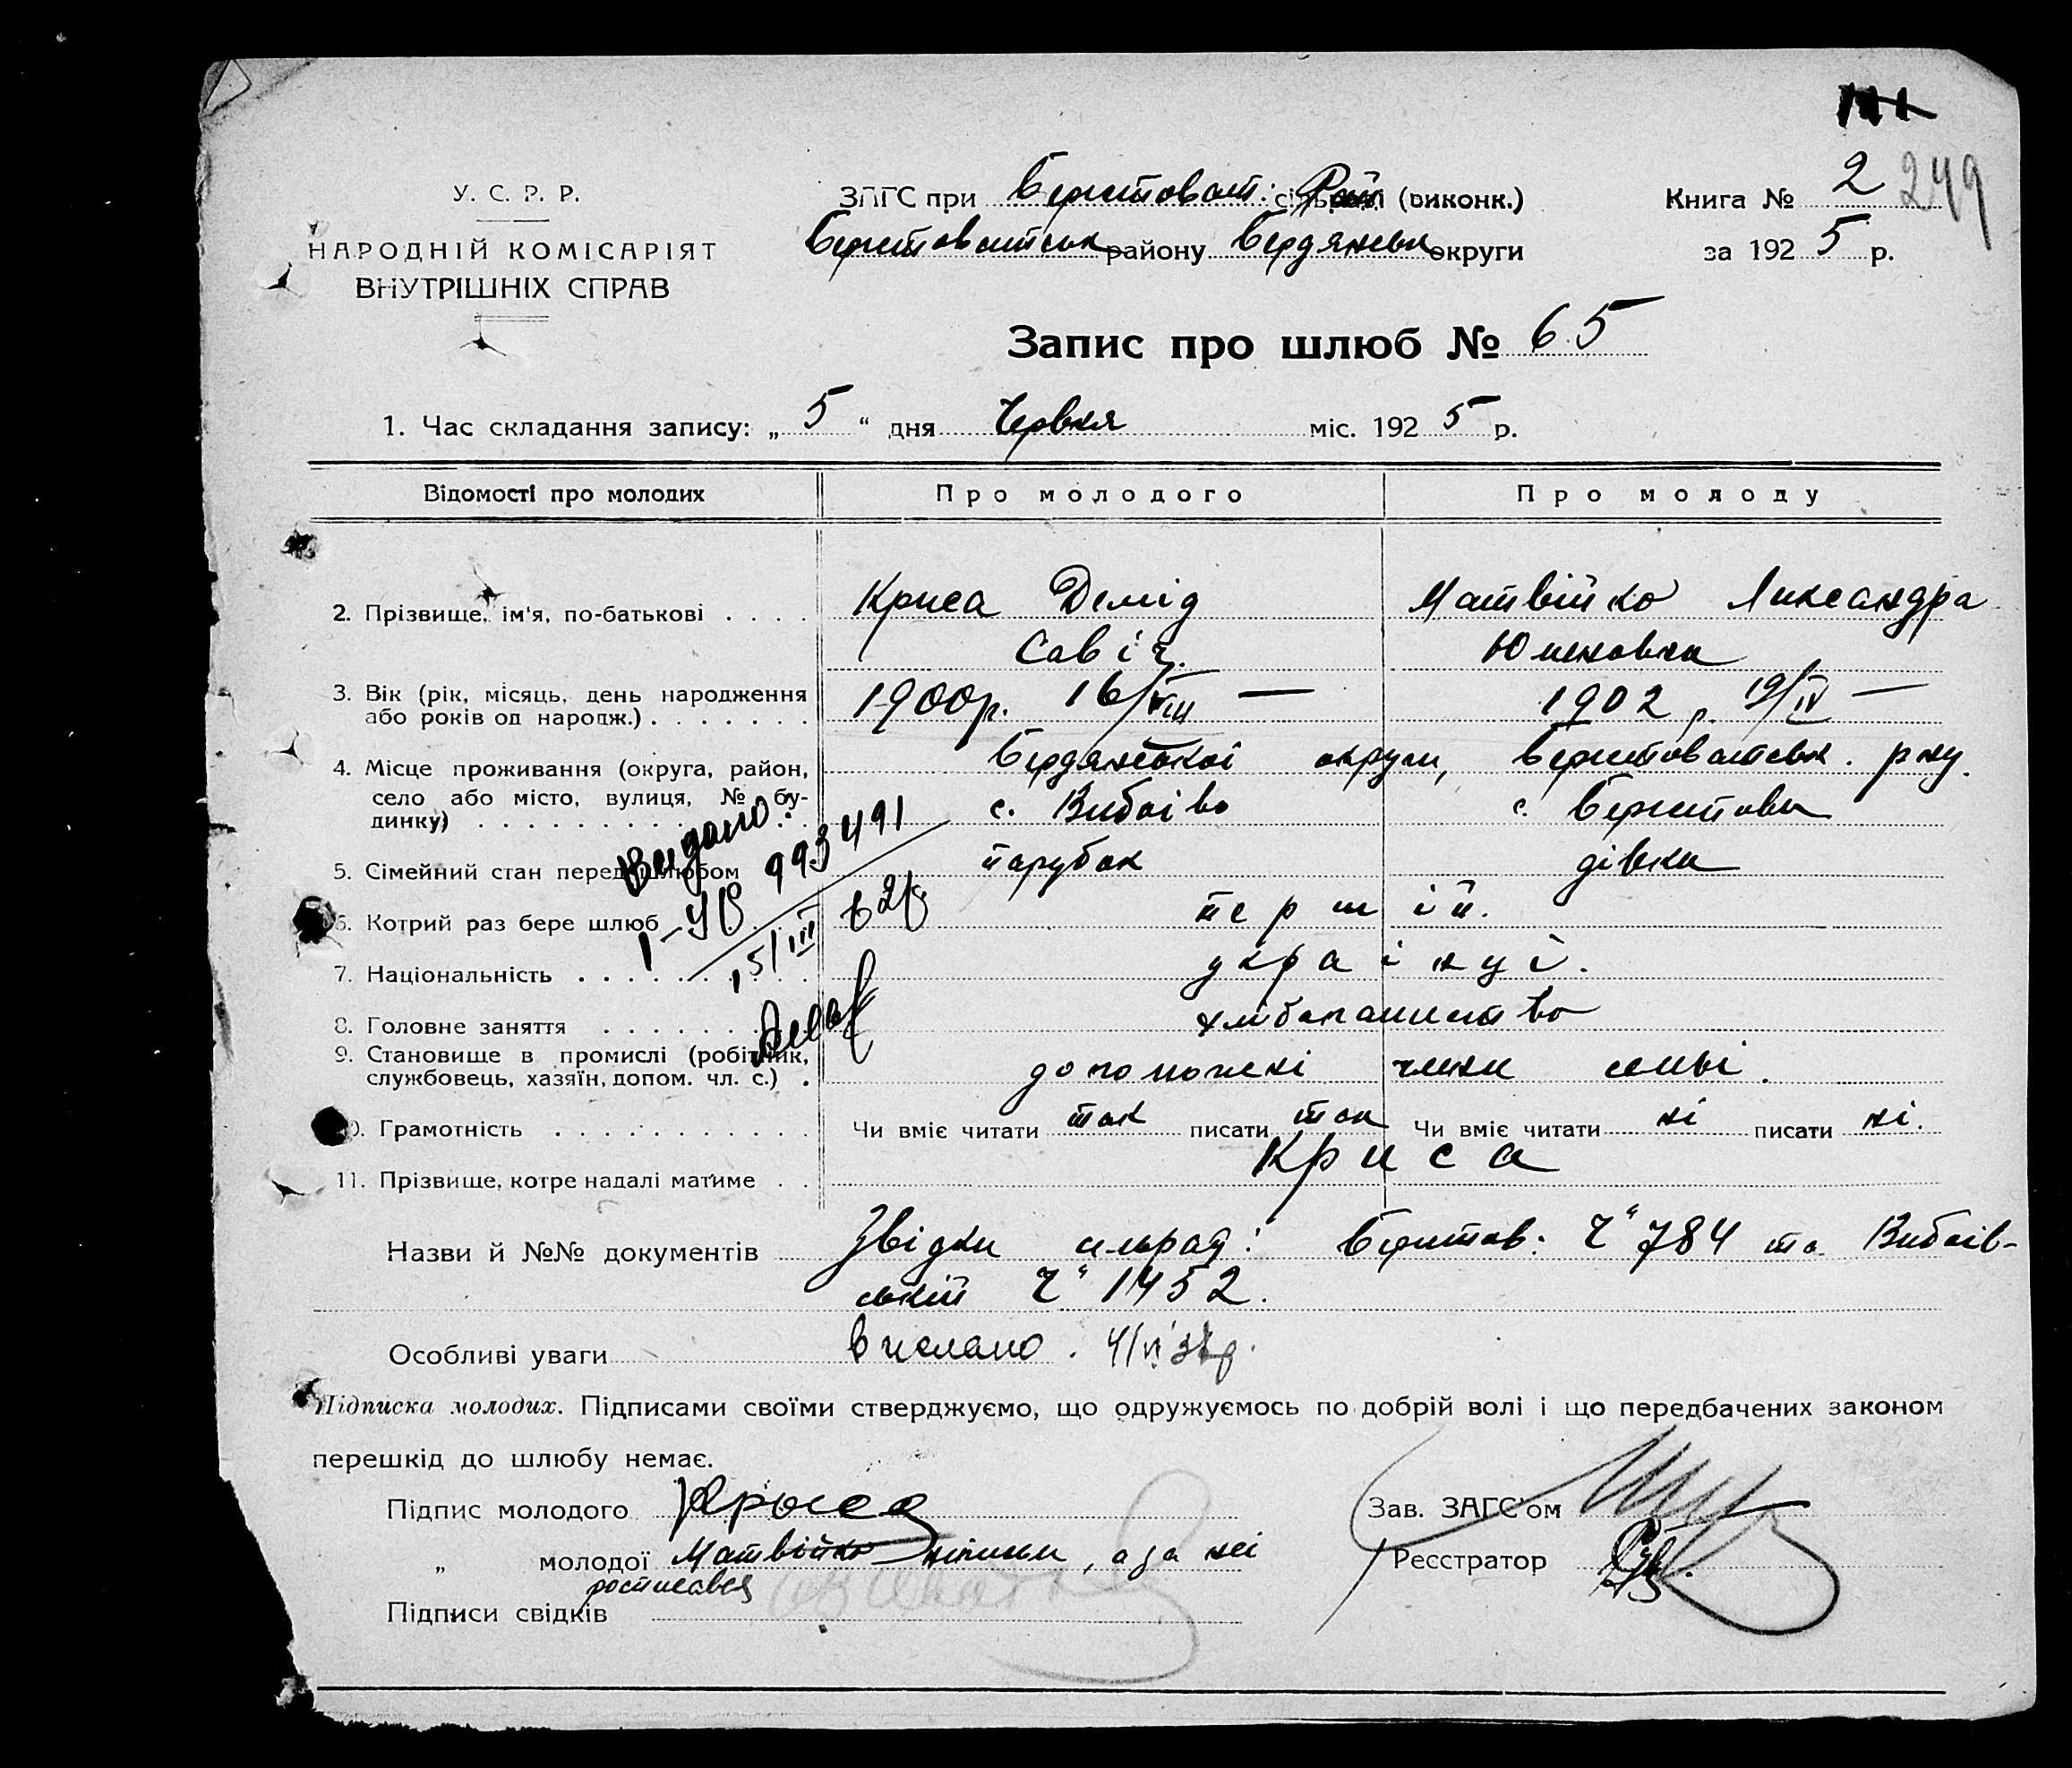 У. С. Р. Р.
НАРОДНІЙ КОМІСАРІЯТ
ВНУТРІШНІХ СПРАВ
ЗАГС при Берстоват: Рай (виконк.)
Берстоватськ району Бердянськ округи
Книга № 2 249
за 1925 р.
Запис про шлюб № 65
1. Час складання запису: „5“ дня Червня міс. 1925 р.
Відомості про молодих Про молодого Про молоду
2. Прізвище, ім'я, по-батькові . . . . Криса Демід Матвійко Ликсандра
Савіч. Юхимовна
3. Вік (рік, місяць, день народження
або років од народж.) . . . . . . . 1900р. 16/VIII — 1902 р. 19/IV —
4. Місце проживання (округа, район, Бердянської округи, Берстоватськ. р ну.
село або місто, вулиця, № бу-
динку) с. Вибоіво с. Берстова
Видано
5. Сімейний стан перед шлюбом парубок дівка
I-УБ 993491
6. Котрий раз бере шлюб перший.
15/III 62р
7. Національність українці.
8. Головне заняття хлібопашество
9. Становище в промислі (робітник,
службовець, хазяїн, допом. чл. с.) . допоможні члени семьі.
10. Грамотність Чи вміє читати так писати так Чи вміє читати ні писати ні.
11. Прізвище, котре надалі матиме . . Криса
Назви й №№ документів Звідки сільрад: Берстов: Ч" 784 та Вибоів-
ській Ч" 1452.
Особливі уваги Вислано. 4/
Підписка молодих. Підписами своїми стверджуємо, що одружуємось по добрій волі і що передбачених законом
перешкід до шлюбу немає.
Підпис молодого Крыса Зав. ЗАГС'ом
„ молодої Матвійко , а за неі Реєстратор
росписався
Підписи свідків